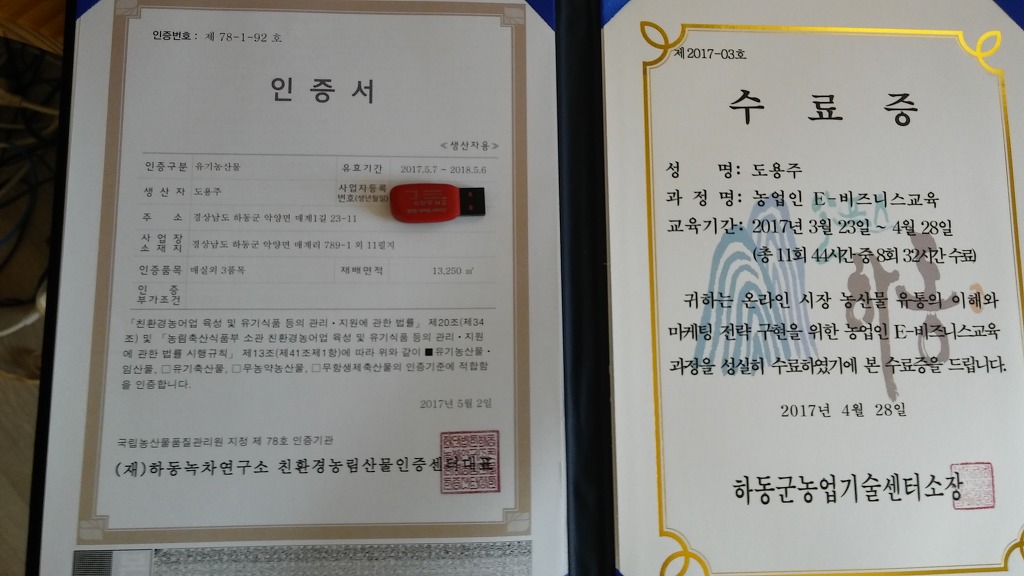 인증번호 : 제 78-1-92 호
인 증 서
≪생산자용≫
인증구분 유기농산물 유효기간 2017.5.7 ~ 2018.5.6
생 산 자 도용주 사업자등록
번호(생년월일)
주 소 경상남도 하동군 악양면 매계1길 23-11
사 업 장
소 재 지 경상남도 하동군 악양면 매계리 789-1 외 11필지
인증품목 매실외 3품목 재배면적 13,250 ㎡
인 증
부가조건
「친환경농어업 육성 및 유기식품 등의 관리·지원에 관한 법률」 제20조(제34
조) 및 「농림축산식품부 소관 친환경농어업 육성 및 유기식품 등의 관리·지원
에 관한 법률 시행규칙」 제13조(제41조제1항)에 따라 위와 같이 ■유기농산물·
임산물, □유기축산물, □무농약농산물, □무항생제축산물의 인증기준에 적합함
을 인증합니다.
2017년 5월 2일
국립농산물품질관리원 지정 제 78호 인증기관
(재)하동녹차연구소 친환경농림산물인증센터대표
제2017-03호
수 료 증
성 명: 도용주
과 정 명: 농업인 E-비즈니스교육
교육기간: 2017년 3월 23일~ 4월 28일
(총 11회 44시간 중 8회 32시간 수료)
귀하는 온라인 시장 농산물 유통의 이해와
마케팅 전략 구현을 위한 농업인 E-비즈니스교육
과정을 성실히 수료하였기에 본 수료증을 드립니다.
2017년 4월 28일
하동군농업기술센터소장